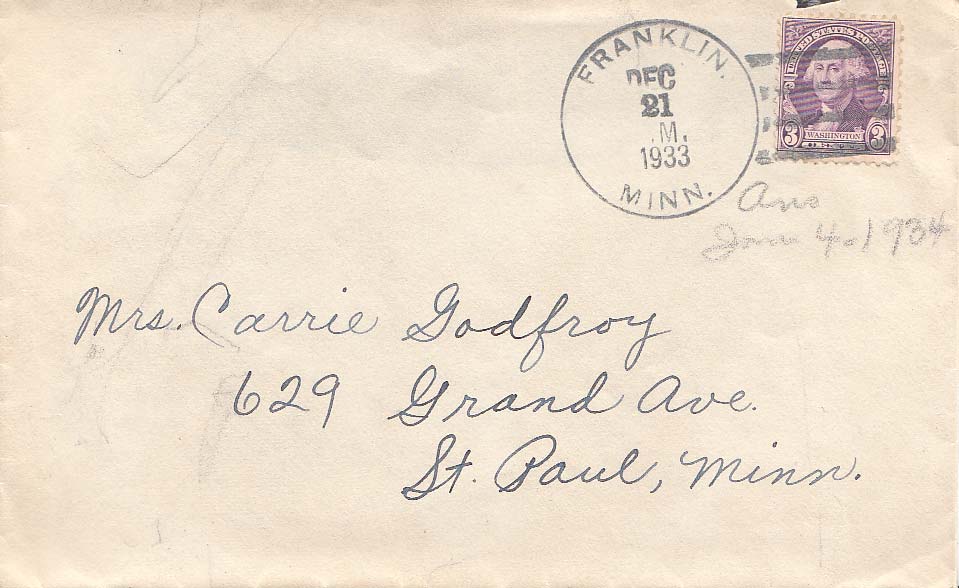 FRANKLIN.
DEC
21
.M.
1933
MINN.
UNITED STATES POSTAGE
3 WASHINGTON 3
Ans
Jan 4-1934
Mrs. Carrie Godfroy
629 Grand Ave.
St. Paul, Minn.